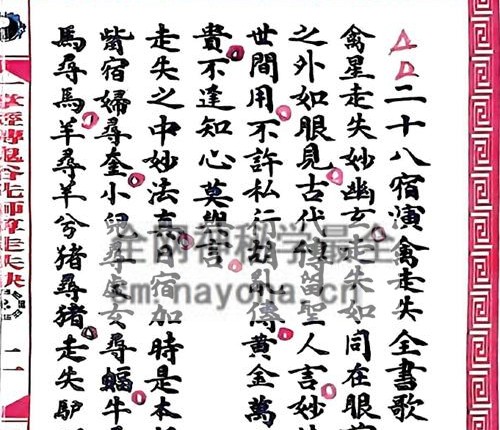 二十八宿演禽走失全書歌
禽星走失妙幽玄走失如同在眼
之外如眼見古代傳留聖人言妙
世間用不許私行胡亂傳黃金萬
貴不逢知心莫與言
走失之中妙法真日宿加時是本
觜宿婦尋奎小兒尋女尋蝠牛
馬尋馬羊尋羊兮猪尋猪走失驢
鬼谷先師算走失決
sm.nayona.cn